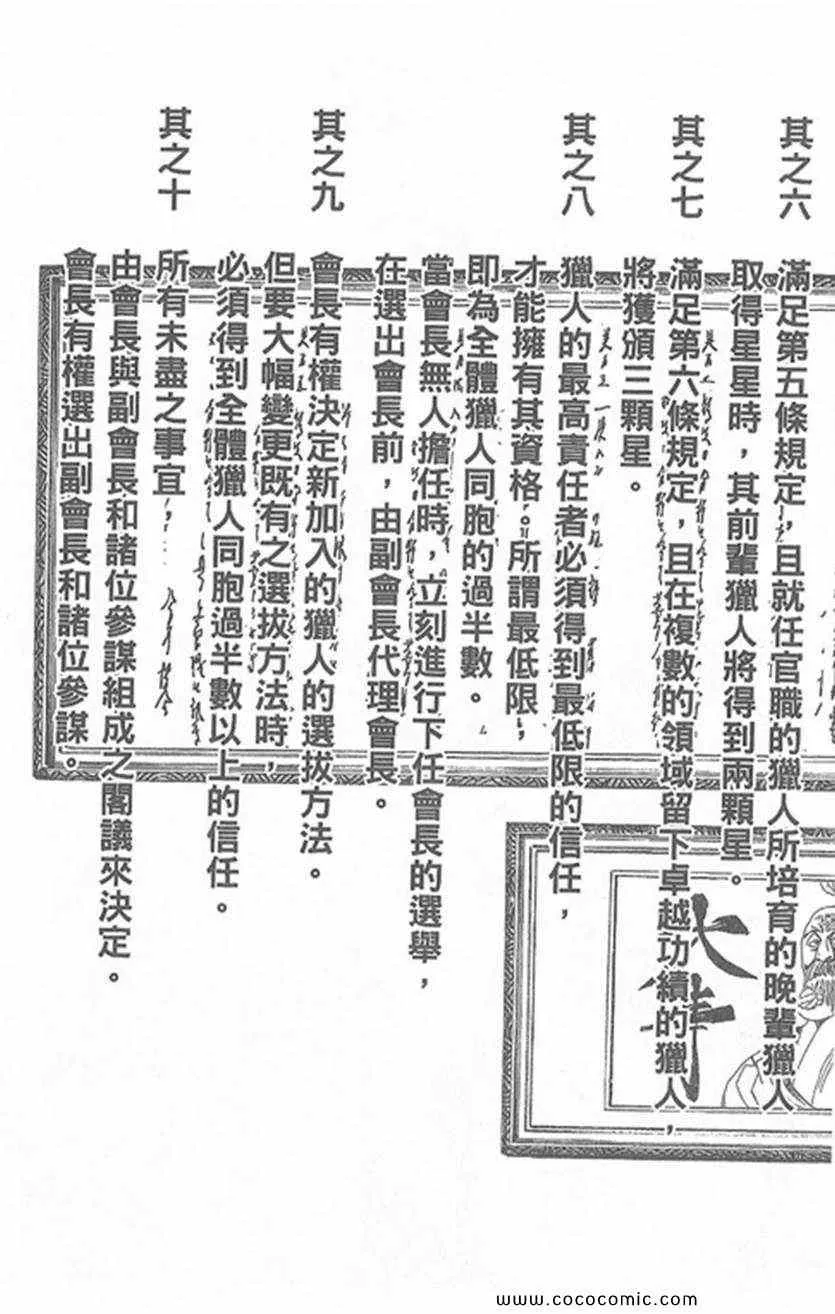 其之六
滿足第五條規定，且就任官職的獵人所培育的晚輩獵人
取得星星時，其前輩獵人將得到兩顆星。
其之七
滿足第六條規定，且在複數的領域留下卓越功績的獵人，
將獲頒三顆星。
其之八
獵人的最高責任者必須得到最低限的信任，
才能擁有其資格。所謂最低限，
即為全體獵人同胞的過半數。
當會長無人擔任時，立刻進行下任會長的選舉，
在選出會長前，由副會長代理會長。
其之九
會長有權決定新加入的獵人的選拔方法。
但要大幅變更既有之選拔方法時，
必須得到全體獵人同胞過半數以上的信任。
其之十
所有未盡之事宜
由會長與副會長和諸位參謀組成之閣議來決定。
會長有權選出副會長和諸位參謀。
www.cococomic.com